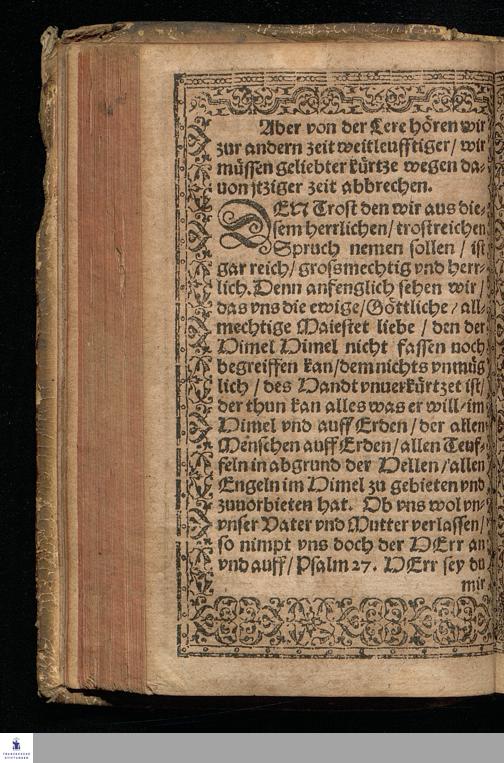 Aber von der Lere hören wir
zur andern zeit weitleufftiger/ wir
müssen geliebter kürtze wegen da-
uon jtziger zeit abbrechen.
DEN Trost den wir aus die-
sem herrlichen/ trostreichen
Spruch nemen sollen / ist
gar reich/ grosmechtig vnd herr-
lich. Denn anfenglich sehen wir /
das vns die ewige/ Göttliche / all-
mechtige Maiestet liebe / den der
Himel Himel nicht fassen noch
begreiffen kan/ dem nichts vnmüg
lich / des Handt vnuerkürtzet ist/
der thun kan alles was er will/ im
Himel vnd auff Erden/ der allen
Menschen auff Erden/ allen Teuf-
feln in abgrund der Hellen/ allen
Engeln im Himel zu gebieten vnd
zuuorbieten hat. Ob vns wol vn-
vnser Vater vnd Mutter verlassen/
so nimpt vns doch der HErr an
vnd auff/ Psalm 27. HErr sey du
mir
FRANCKESCHE
STIFTUNGEN